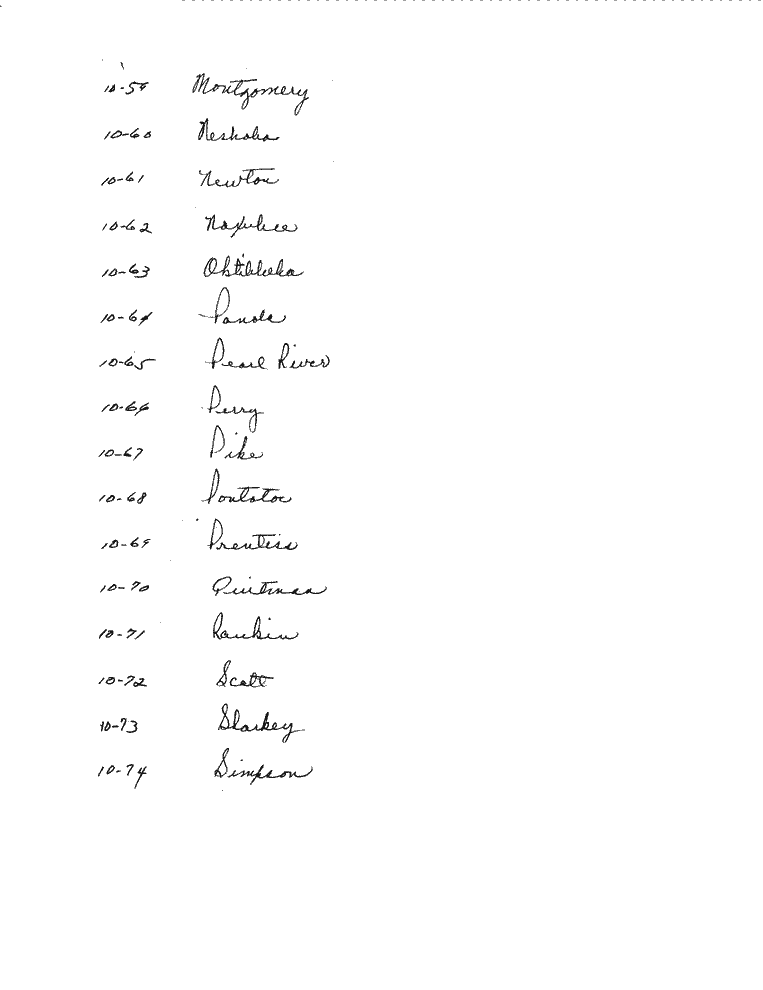 10-59 Montgomery
10-60 Neshoba
10-61 Newton
10-62 Noxubee
10-63 Oktibbeha
10-64 Panola
10-65 Pearl River
10-66 Perry
10-67 Pike
10-68 Pontotoc
10-69 Prentiss
10-70 Quitman
10-71 Rankin
10-72 Scott
10-73 Sharkey
10-74 Simpson